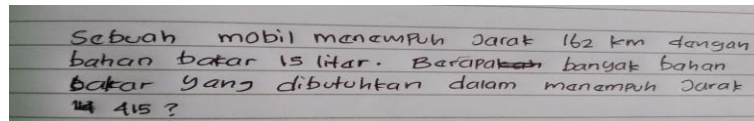 Sebuah mobil menempuh Jarak 162 km dengan
bahan bakar 15 liter. Berapa banyak bahan
bakar yang dibutuhkan dalam menempuh Jarak
415 ?